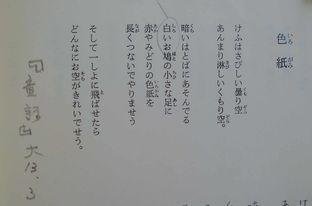 色紙
けふはさびしい曇り空
あんまり淋しいくもり空。
暗いはとばにあそんでる
白いお鳩の小さな足に
赤やみどりの色紙を
長くつないでやりませう
そして一しよに飛ばせたら
どんなにお空がきれいでせう。
大13.3